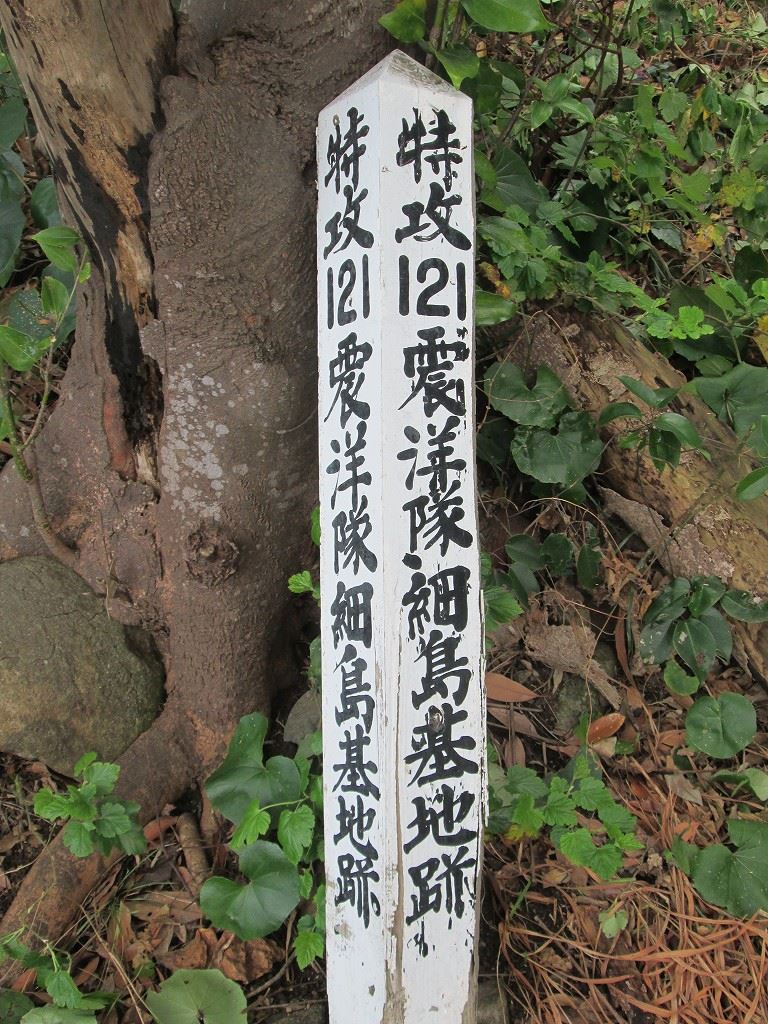 特攻121震洋隊細島基地跡
特攻121震洋隊細島基地跡